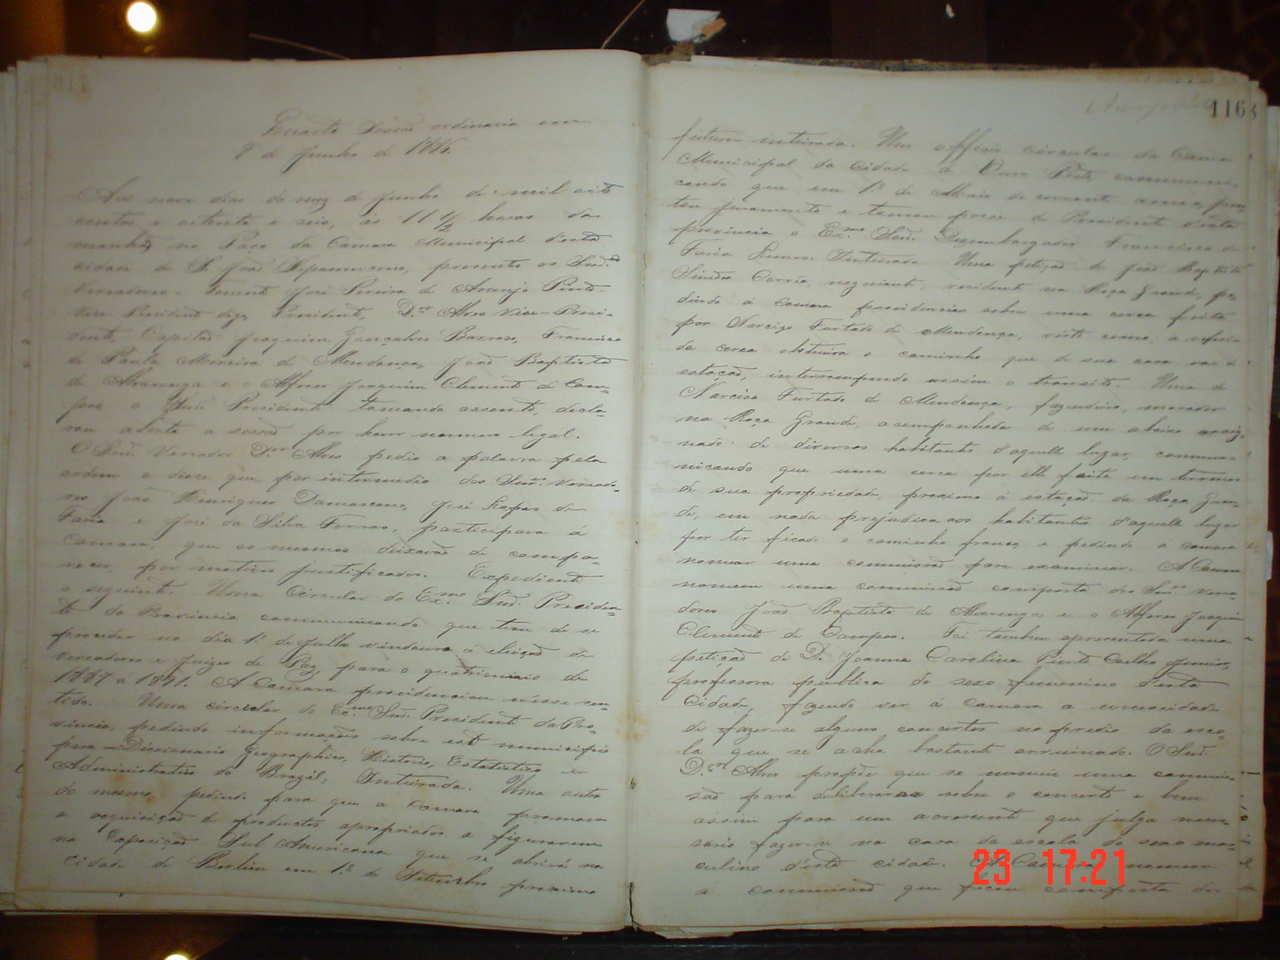 Quarta Sessão ordinaria em
9 de Junho de 1886.
Aos nove dias do mez de Junho de mil oito
centos e oitenta e seis, as 11 1/2 horas da
manhã no Paço da Camara Municipal d'esta
cidade de S. João Nepomuceno, presente os Snrs.
Vereadores Tenente José Pereira de Araujo Pinto
Vice-Presidente digo, Presidente, Dor. Alves Vice-Presi-
dente, Capitão Joaquim Gonçalves Barroso, Francisco
de Paula Moreira de Mendonça, João Baptista
de Alvarenga e o Alferes Joaquim Clemente de Cam-
pos o Snr. Presidente tomando assento, decla-
rou aberta a sessão por haver numero legal.
O Snr. Vereador Dor. Alves pedio a palavra pela
ordem e disse que por intermedio dos Snrs. Vereado-
res João Henriques Damasceno, José
Faria e José da Silva Ferraz, participara á
Camara, que os mesmos deixarão de compa-
recer, por motivos justificados. Expediente
o seguinte. Uma Circular do Exmo. Snr. Presiden-
te da Provincia communicando que tem de se
proceder no dia 1º de Julho vindouro a eleição de
Vereadores e Juizes de Paz para o quatriennio de
1887 á 1891. A Camara providenciou n'esse sen-
tido. Uma circular do Exmo. Snr. Presidente da Pro-
vincia, pedindo informações sobre este municipio
para Diccionario Geographico, Historico, Estatistico e
Administrativo do Brazil, Inteirada. Uma outra
do mesmo pedindo para que a Camara promova
a acquisição de productos apropriados a figurarem
na Exposição Sul Americana que se abrirá na
cidade de Berlim em 1º de Setembro proximo
116
futuro inteirada. Um officio circular da Camara
Municipal da Cidade de Ouro Preto communi-
cando que em 1º de Maio do corrente anno, pres-
tou juramento e tomou posse de Presidente d'esta
provincia o Exmo. Snr. Dezembargador Francisco de
Faria Lemos. Inteirada. Uma petição de João Baptista
Simões Corrêa, negociante, residente na Roça Grande, pe-
dindo á Camara providencias sobre uma cerca feita
por Narcizo Furtado de Mendonça, visto como, a referi-
da cerca obstruira o caminho que de sua casa vai á
estação, interrompendo assim o transito. Uma de
Narcizo Furtado de Mendonça, fazendeiro, morador
na Roça Grande, acompanhada de um abaixo assig-
nado de diversos habitantes d'aquelle lugar, commu-
nicando que uma cerca por elle feita em terrenos
de sua propriedade, proximo á estação da Roça Gran-
de, em nada prejudica aos habitantes d'aquelle lugar
por ter ficado o caminho franco e pedindo á Camara
nomear uma commissão para examinar. A Camara
nomeou uma commissão composta dos Snrs. Verea-
dores João Baptista de Alvarenga e o Alferes Joaquim
Clemente de Campos. Foi tambem apresentada uma
petição de D. Joanna Carolina Pinto Coelho Junior,
professora publica do sexo feminino d'esta
Cidade, fazendo ver á Camara a necessidade
de fazer-se alguns concertos no predio da esco-
la que se acha bastante arruinado. O Snr.
Dor. Alves propõe que se nomeie uma commis-
são para deliberar sobre o concerto e bem
assim para um accrescent que julga neces-
sario fazer-se na casa da escola do sexo mas-
culino d'esta cidade. A Camara nomeou
a commissão que ficou composta dos
23 17:21